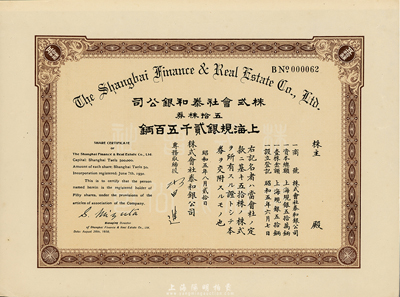 The Shanghai Finance & Real Estate Co., Ltd.
B No 000062
株式會社泰和銀公司
五拾株券
上海規銀貳千五百兩
株主
殿
一商號 株式會社泰和銀公司
一資本總額 上海規銀五拾萬兩
一壹株金額 上海規銀五拾兩
一設立登記 昭和五年六月七日
右記名者ハ當會社ノ定
款ニ基キ五拾株ノ株式
ヲ所有スル證トシテ本
券ヲ交附スルモノ也
昭和五年八月貳拾日
株式會社泰和銀公司
專務取締役
SHARE CERTIFICATE
The Shanghai Finance & Real Estate Co., Ltd
Capital: Shanghai Taels 500,000.
Amount of each share: Shanghai Taels 50.
Incorporation registered: June 7th, 1930.
This is to certify that the person
named herein is the registered holder of
Fifty shares, under the provisions of the
articles of association of the Company.
Managing Director
of Shanghai Finance & Real Estate Co., Ltd.
Date: August 20th, 1930.